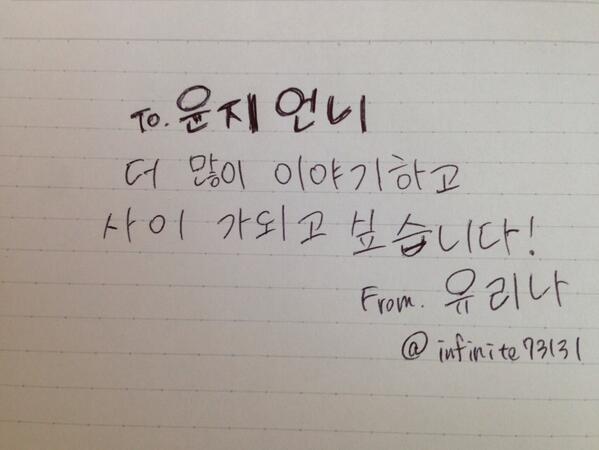 To. 윤지 언니
더 많이 이야기하고
사이 가되고 싶습니다!
From. 유리나
@infinite73131